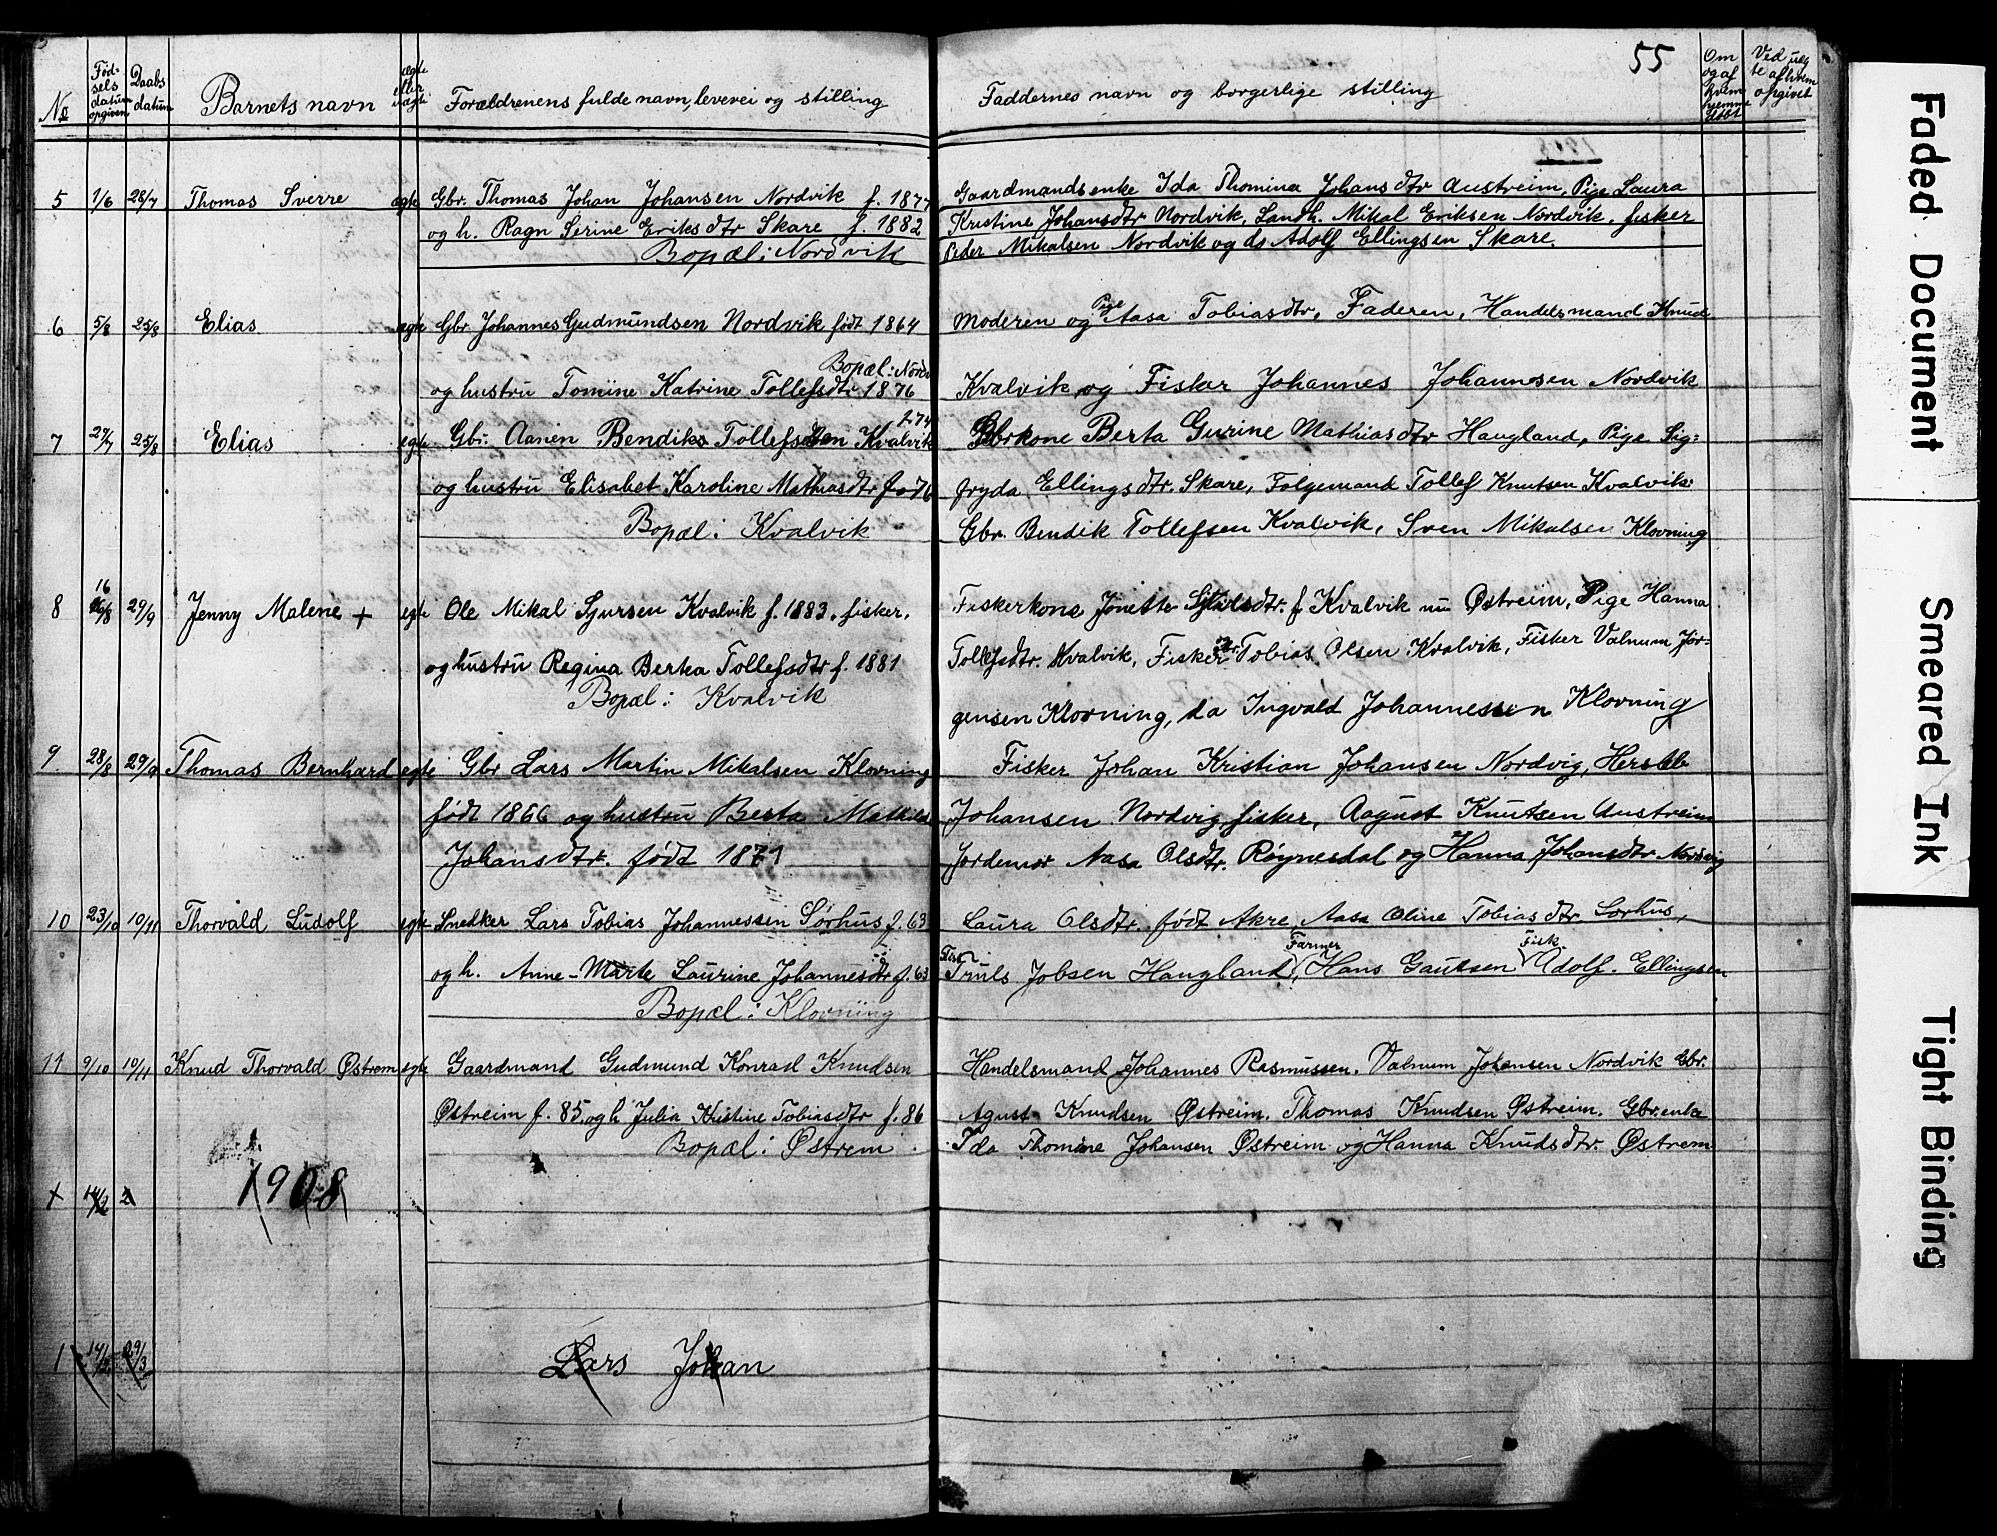 55
No
Fødselsdatum opgiven
Daabsdatum
Barnets navn
ægte eller uægte
Forældrenens fulde navn, levevei og stilling
Faddernes navn og borgerlige stilling
Om og af hvem hjemmedøbt
Ved uægte af hvem opgivet
5 1/6 28/7 Thomas Sverre ægte Gbr. Thomas Johan Johansen Nordvik f. 1877
og h. Ragn Serine Eriksdtr Skare f. 1882
Bopæl: Nordvik
Gaardmandsenke Ida Thomina Johansdtr Austreim, Pige Laura
Kristine Johansdtr Nordvik, Landh. Mikal Eriksen Nordvik, fisker
Peder Mikalsen Nordvik og do Adolf Ellingsen Skare.
6 5/8 25/8 Elias ægte Gbr Johannes Gudmundsen Nordvik født 1864
Bopæl: Nordv
og hustru Tomine Katrine Tollefsdtr 1876
Moderen og Pige Aasa Tobiasdtr, Faderen, Handelsmand Knud
Kvalvik og Fisker Johannes Johannesen Nordvik
7 27/7 25/8 Elias egte Gbr. Aanen Bendiks Tollefsen Kvalvik f. 74
og hustru Elisabet Karoline Mathiasdtr f. 76
Bopæl: Kvalvik
Gbrkone Berta Gurine Mathiasdtr Haugland, Pige Sig-
fryda Ellingsdtr. Skare, Følgemand Tollef Knutsen Kvalvik
Gbr. Bendik Tollefsen Kvalvik, Sven Mikalsen Klovning
8 16/8 29/9 Jenny Malene + egte Ole Mikal Sjursen Kvalvik f. 1883. fisker,
og hustru Regina Berta Tollefsdtr f. 1881
Bopæl: Kvalvik
Fiskerkone Jonette Sjursdtr. f Kvalvik nu Østreim, Pige Hanna
Tollefsdtr. Kvalvik, Fisker Tobias Olsen Kvalvik, Fisker Valnum Jør-
gensen Klovning, do Ingvald Johannessen Klovning
9 28/8 29/9 Thomas Bernhard egte Gbr Lars Martin Mikalsen Klovning
født 1866 og hustru Berta Mathilde
Johansdtr. født 1871
Fisker Johan Kristian Johansen Nordvig, Hersleb
Johansen Nordvig fisker, August Knutsen Austreim
Jordemor Aasa Olsdtr. Røynesdal og Hanna Johansdtr Nordvig
10 23/10 10/11 Thorvald Ludolf egte Snedker Lars Tobias Johannessen Sørhus f. 63
og h. Anne-Marte Laurine Johannesdtr f. 63
Bopæl: Klovning
Laura Olsdtr. født Akre, Aasa Oline Tobiasdtr Sørhus,
Truls Jobsen Haugland, Farmer Hans Gautsen Fisk. Adolf. Ellingsen
11 9/10 10/11 Knud Thorvald Østrem egte Gaardmand Gudmund Konrad Knudsen
Østreim f. 85. og h Julia Kristine Tobiasdtr f. 86
Bopæl: Østrem
Handelsmand Johannes Rasmussen. Valnum Johansen Nordvik Gbr.
Agust Knudsen Østreim. Thomas Knudsen Østreim. Gbr.enke
Ida Thomine Johansen Østreim og Hanna Knudsdtr. Østrem
1908
1 14/2 2
1 14/2 29/3 Lars Johan
Faded Document
Smeared Ink
Tight Binding